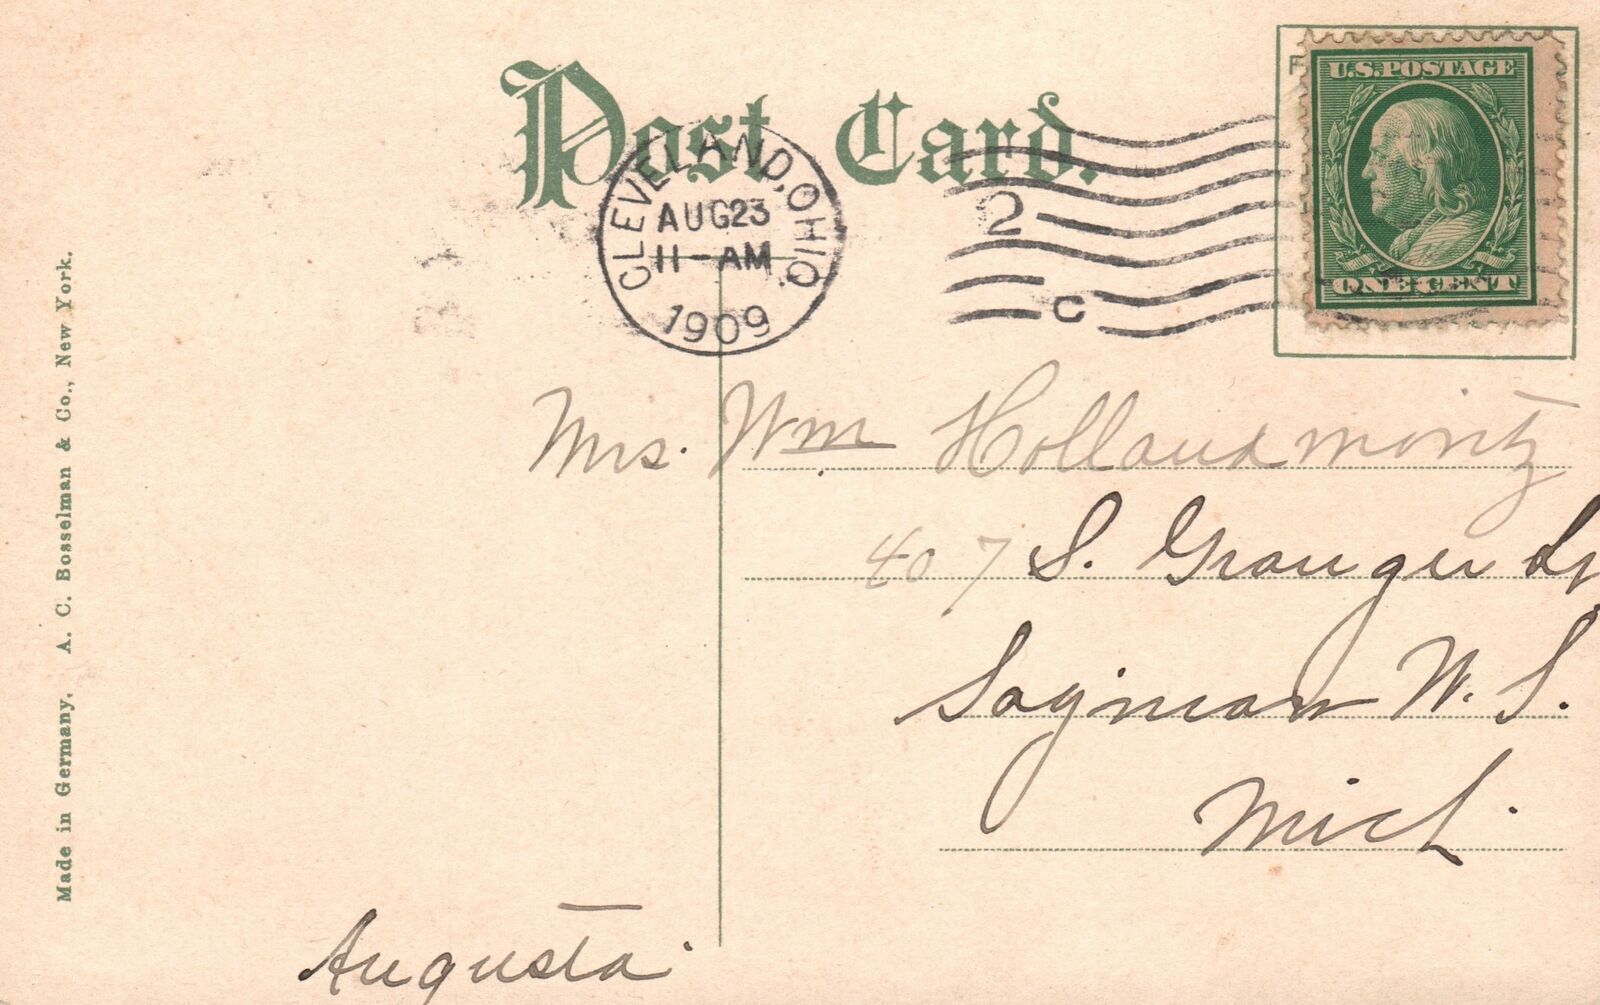 Post Card.
U.S. POSTAGE
ONE CENT
CLEVELAND, OHIO.
AUG 23
11-AM
1909
2
C
Mrs. Wm Hollandmoritz
407 S. Granger St
Saginaw W. S.
Mich.
Augusta.
Made in Germany. A. C. Bosselman & Co., New York.